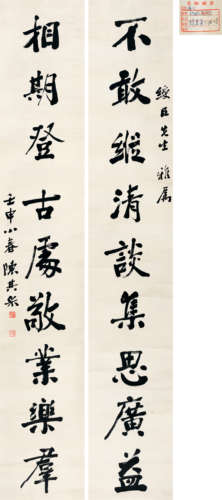 綬臣先生 雅屬
不敢縱清談集思廣益
相期登古處敬業樂羣
壬申小春 陳其采